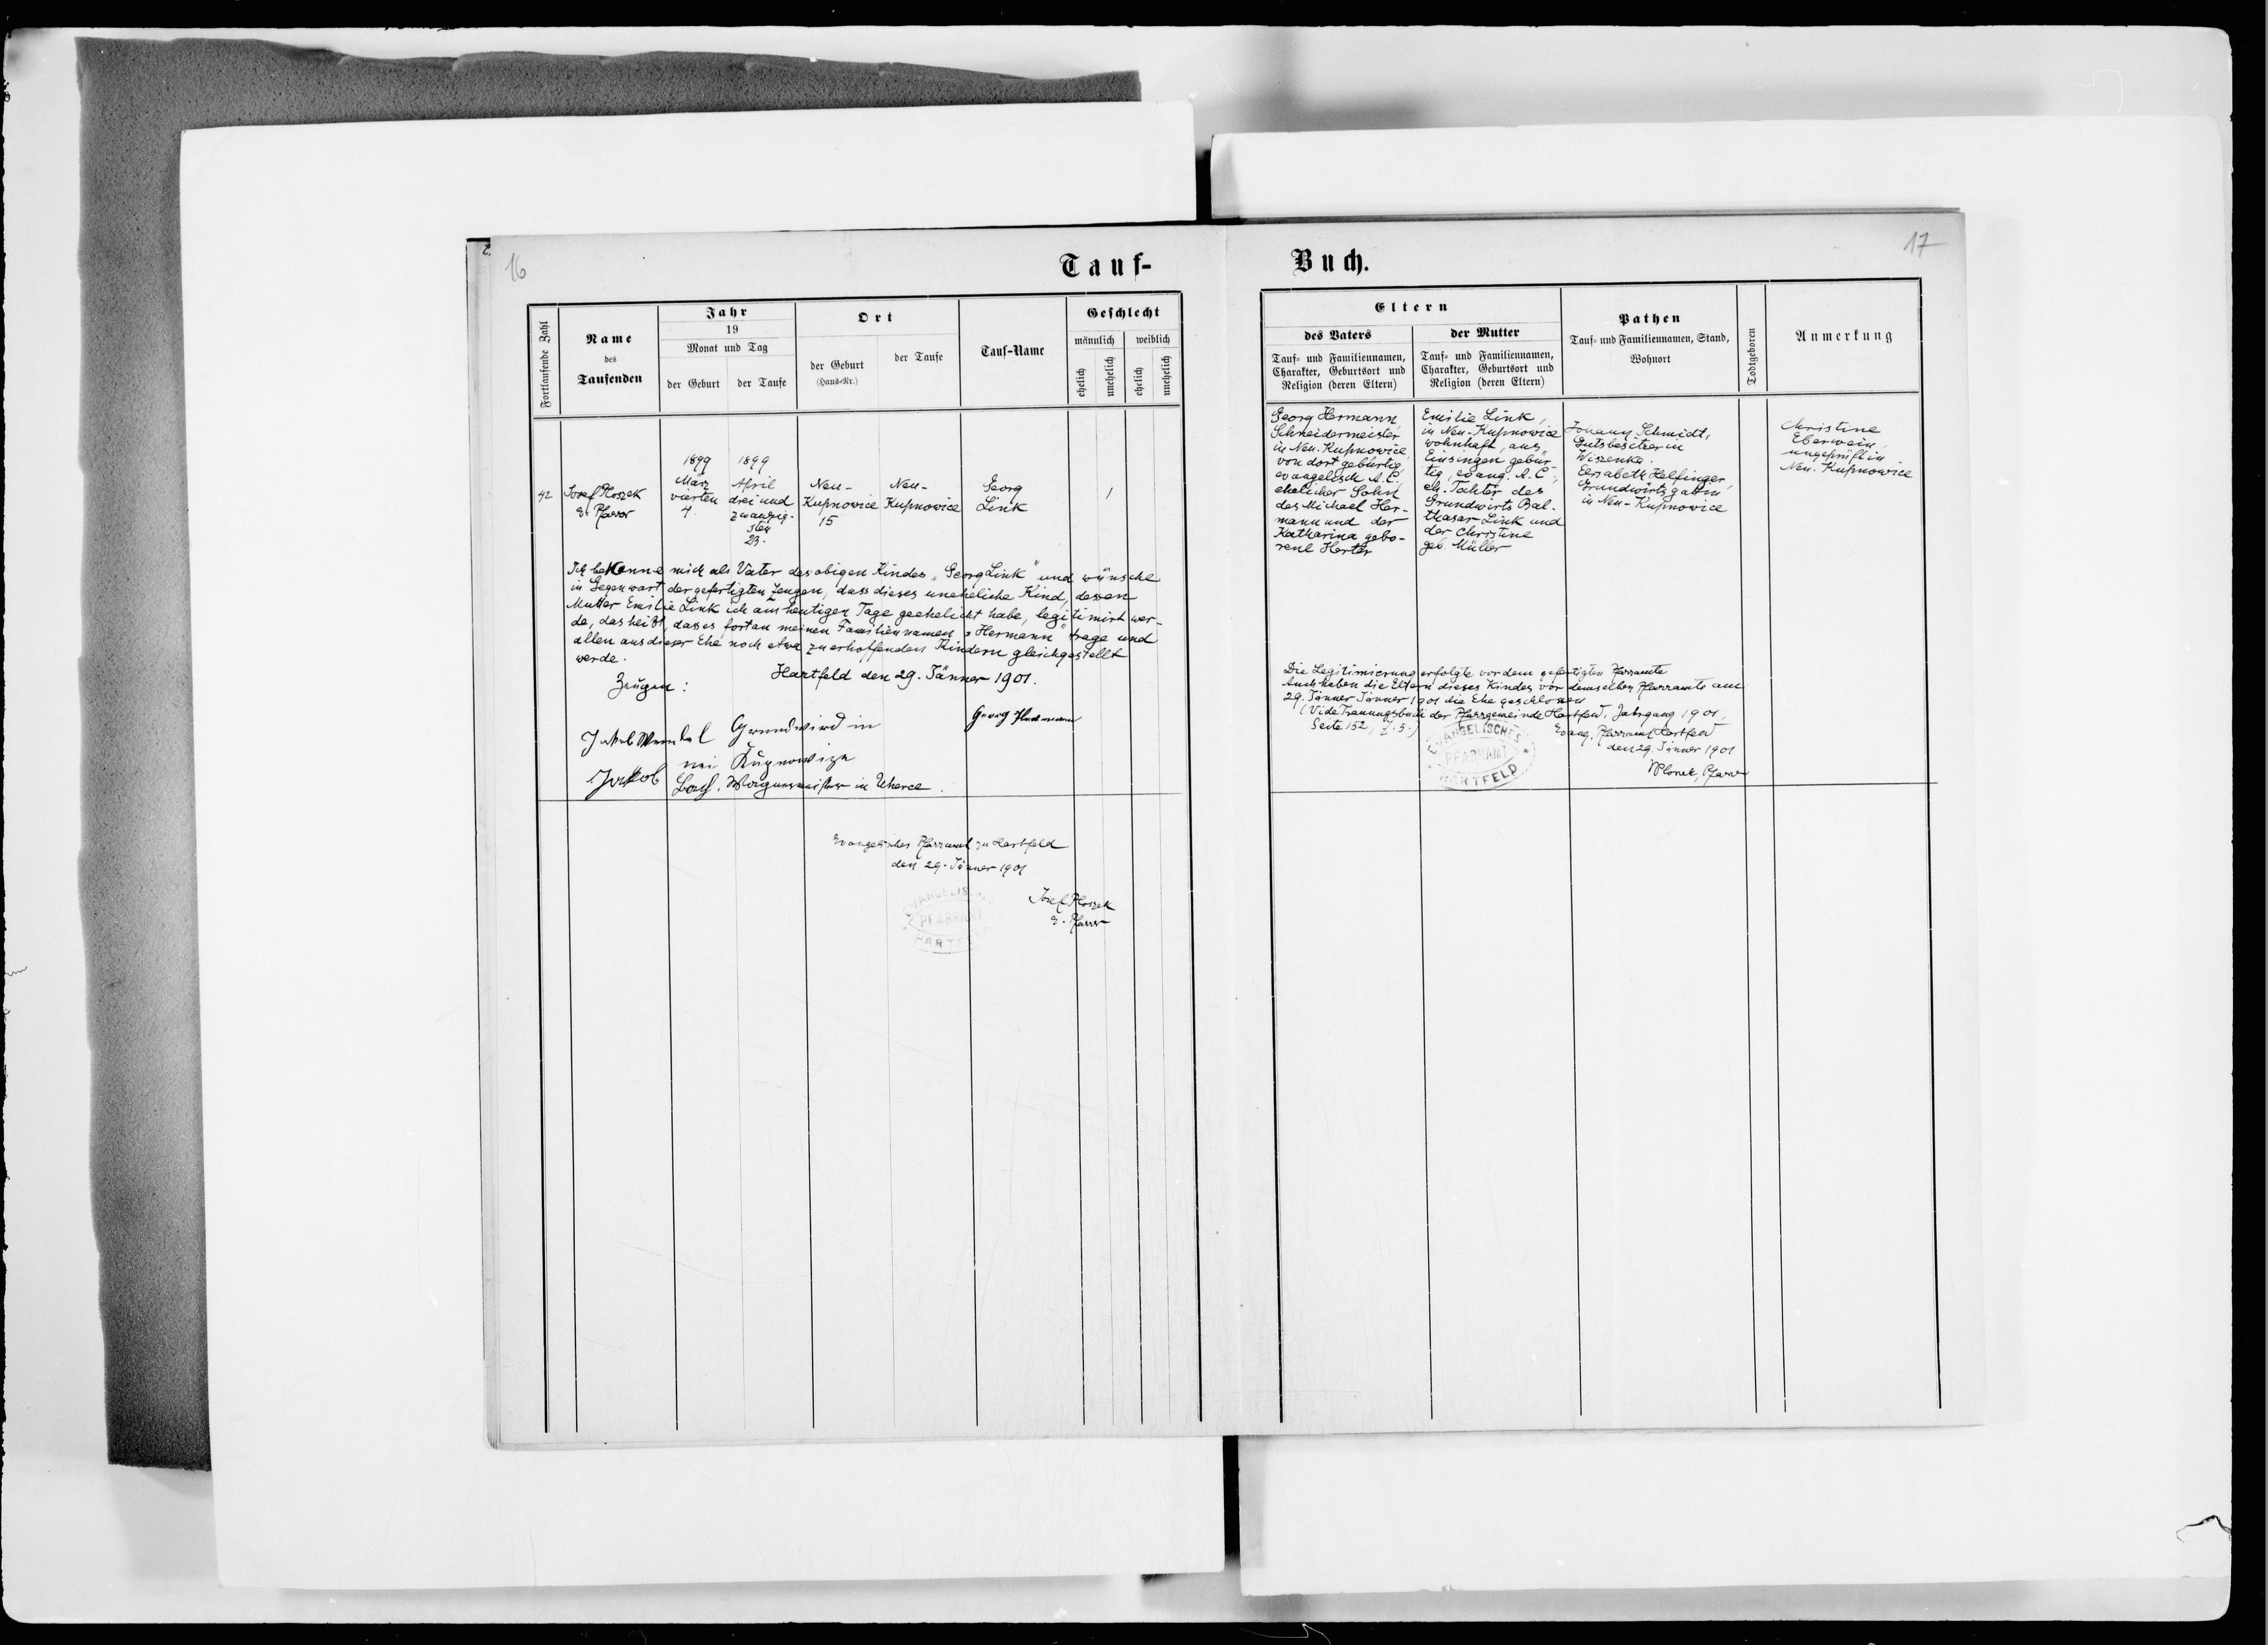 16
Tauf-
Fortlaufende Zahl
Name
des
Taufenden
Jahr
19
Monat und Tag
der Geburt
der Taufe
Ort
der Geburt
(Haus-Nr.)
der Taufe
Tauf-Name
Geschlecht
männlich
weiblich
ehelich
unehelich
ehelich
unehelich
42
Josef Ploszek
ev. Pfarrer
1899
März
vierten
4.
1899
April
drei und
zwanzig-
sten
23.
Neu-
Kupnowice
15
Neu-
Kupnowice
Georg
Link
1
Ich bekenne mich als Vater des obigen Kindes „Georg Link" und wünsche
in Gegenwart der gefertigten Zeugen, dass dieses uneheliche Kind, dessen
Mutter Emilie Link ich am heutigen Tage geehelicht habe, legitimirt wer-
de, das heißt, dass es fortan meinen Familiennamen „Hermann" trage und
allen aus dieser Ehe noch etwa zu erhoffenden Kindern gleichgestellt
werde.
Hartfeld den 29. Jänner 1901.
Zeugen:
Georg
Jakob Grundwird in
nei Kupnowize
Jakob Wagnermeister in Uherce.
Evangelisches Pfarramt zu Hartfeld
den 29. Jänner 1901
EVANGELISCHES
PFARRAMT
HARTFELD
Josef Ploszek
ev. Pfarrer
17
Buch.
Eltern
des Vaters
Tauf- und Familiennamen,
Charakter, Geburtsort und
Religion (deren Eltern)
der Mutter
Tauf- und Familiennamen,
Charakter, Geburtsort und
Religion (deren Eltern)
Pathen
Tauf- und Familiennamen, Stand,
Wohnort
Todtgeboren
Anmerkung
Georg Hermann
Schneidermeister
in Neu-Kupnowice,
von dort gebürtig,
evangelisch A. C.,
ehelicher Sohn
des Michael Her-
mann und der
Katharina gebo-
rene Herter
Emilie Link,
in Neu-Kupnowice
wohnhaft, aus
Einsingen gebür-
tig, evang. A. C.,
eh. Tochter des
Grundwirts Bal-
thasar Link und
der Christine
geb. Müller
Johann Schmidt,
Gutsbesitzer in
Wiszenka.
Elisabeth Helfinger,
Grundwirtsgattin
in Neu-Kupnowice
Christine
Eberwein,
ungeprüft in
Neu-Kupnowice
Die Legitimierung erfolgte vor dem gefertigten Pfarramte
Auch haben die Eltern dieses Kindes vor demselben Pfarramte am
29. Jänner Jänner 1901 die Ehe geschlossen
(Vide Trauungsbuch der Pfarrgemeinde Hartfeld, Jahrgang 1901,
Seite 152, Z. 5.)
Evang. Pfarramt Hartfeld
den 29. Jänner 1901
EVANGELISCHES
PFARRAMT
HARTFELD
Pfarrer